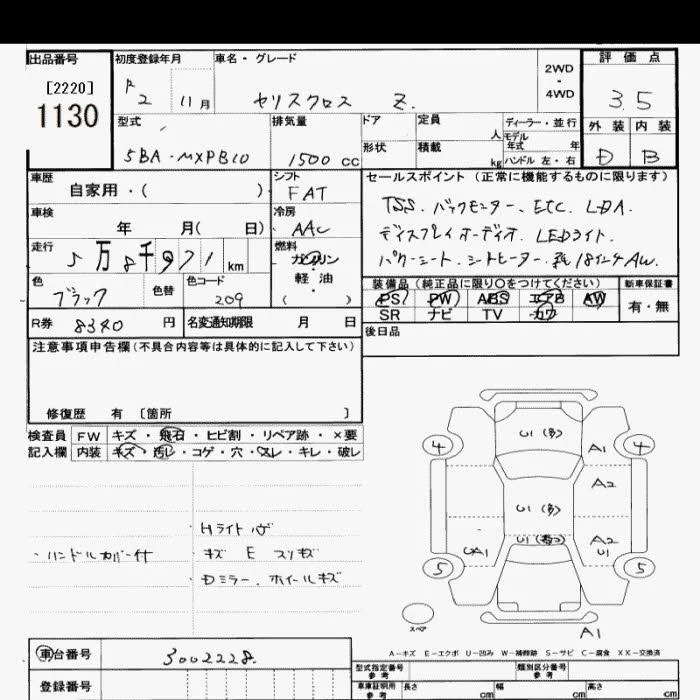 出品番号 初度登録年月 車名・グレード 2WD・4WD 評価点
[2220]
1130
R 2 11月 ヤリスクロス Z. 3.5
型式 排気量 ドア 定員 人 ディーラー・並行 外装 内装
5BA-MXPB10 1500 cc 形状 積載 kg モデル年式 年 ハンドル 左・右 D B
車歴 シフト セールスポイント (正常に機能するものに限ります)
自家用・( ) FAT
車検 冷房 TSS. バックモニター. ETC. LDA.
年 月( 日) AAC ディスプレイオーディオ. LEDライト.
走行 燃料 パワーシート. シートヒーター. 純18インチAW.
5万8千971km ガソリン
軽・油
( )
色 色替 色コード 装備品 (純正品に限り〇をつけてください) 新車保証書
ブラック 209 PS PW ABS エアB AW 有・無
SR ナビ TV カワ
R券 8340 円 名変通知期限 月 日 後日品
注意事項申告欄(不具合内容等は具体的に記入して下さい)
修復歴 有 〔箇所 〕
検査員 FW キズ・飛石・ヒビ割・リペア跡・×要
記入欄 内装 キズ・汚レ・コゲ・穴・スレ・キレ・破レ
・ハンドルカバー付
・Hライト
・キズ E スリキズ
・Dミラー. ホイールキズ
U1(多)
4 A1 4
A2
U1(多)
U1
UA1 A2
U1
5 5
スペア
A1
A−キズ E−エクボ U−凹み W−補修跡 S−サビ C−腐食 XX−交換済
車台番号 3002228.
登録番号
型式指定番号 参考 類別区分番号 参考
車庫証明用 参考 長さ cm 幅 cm 高さ cm